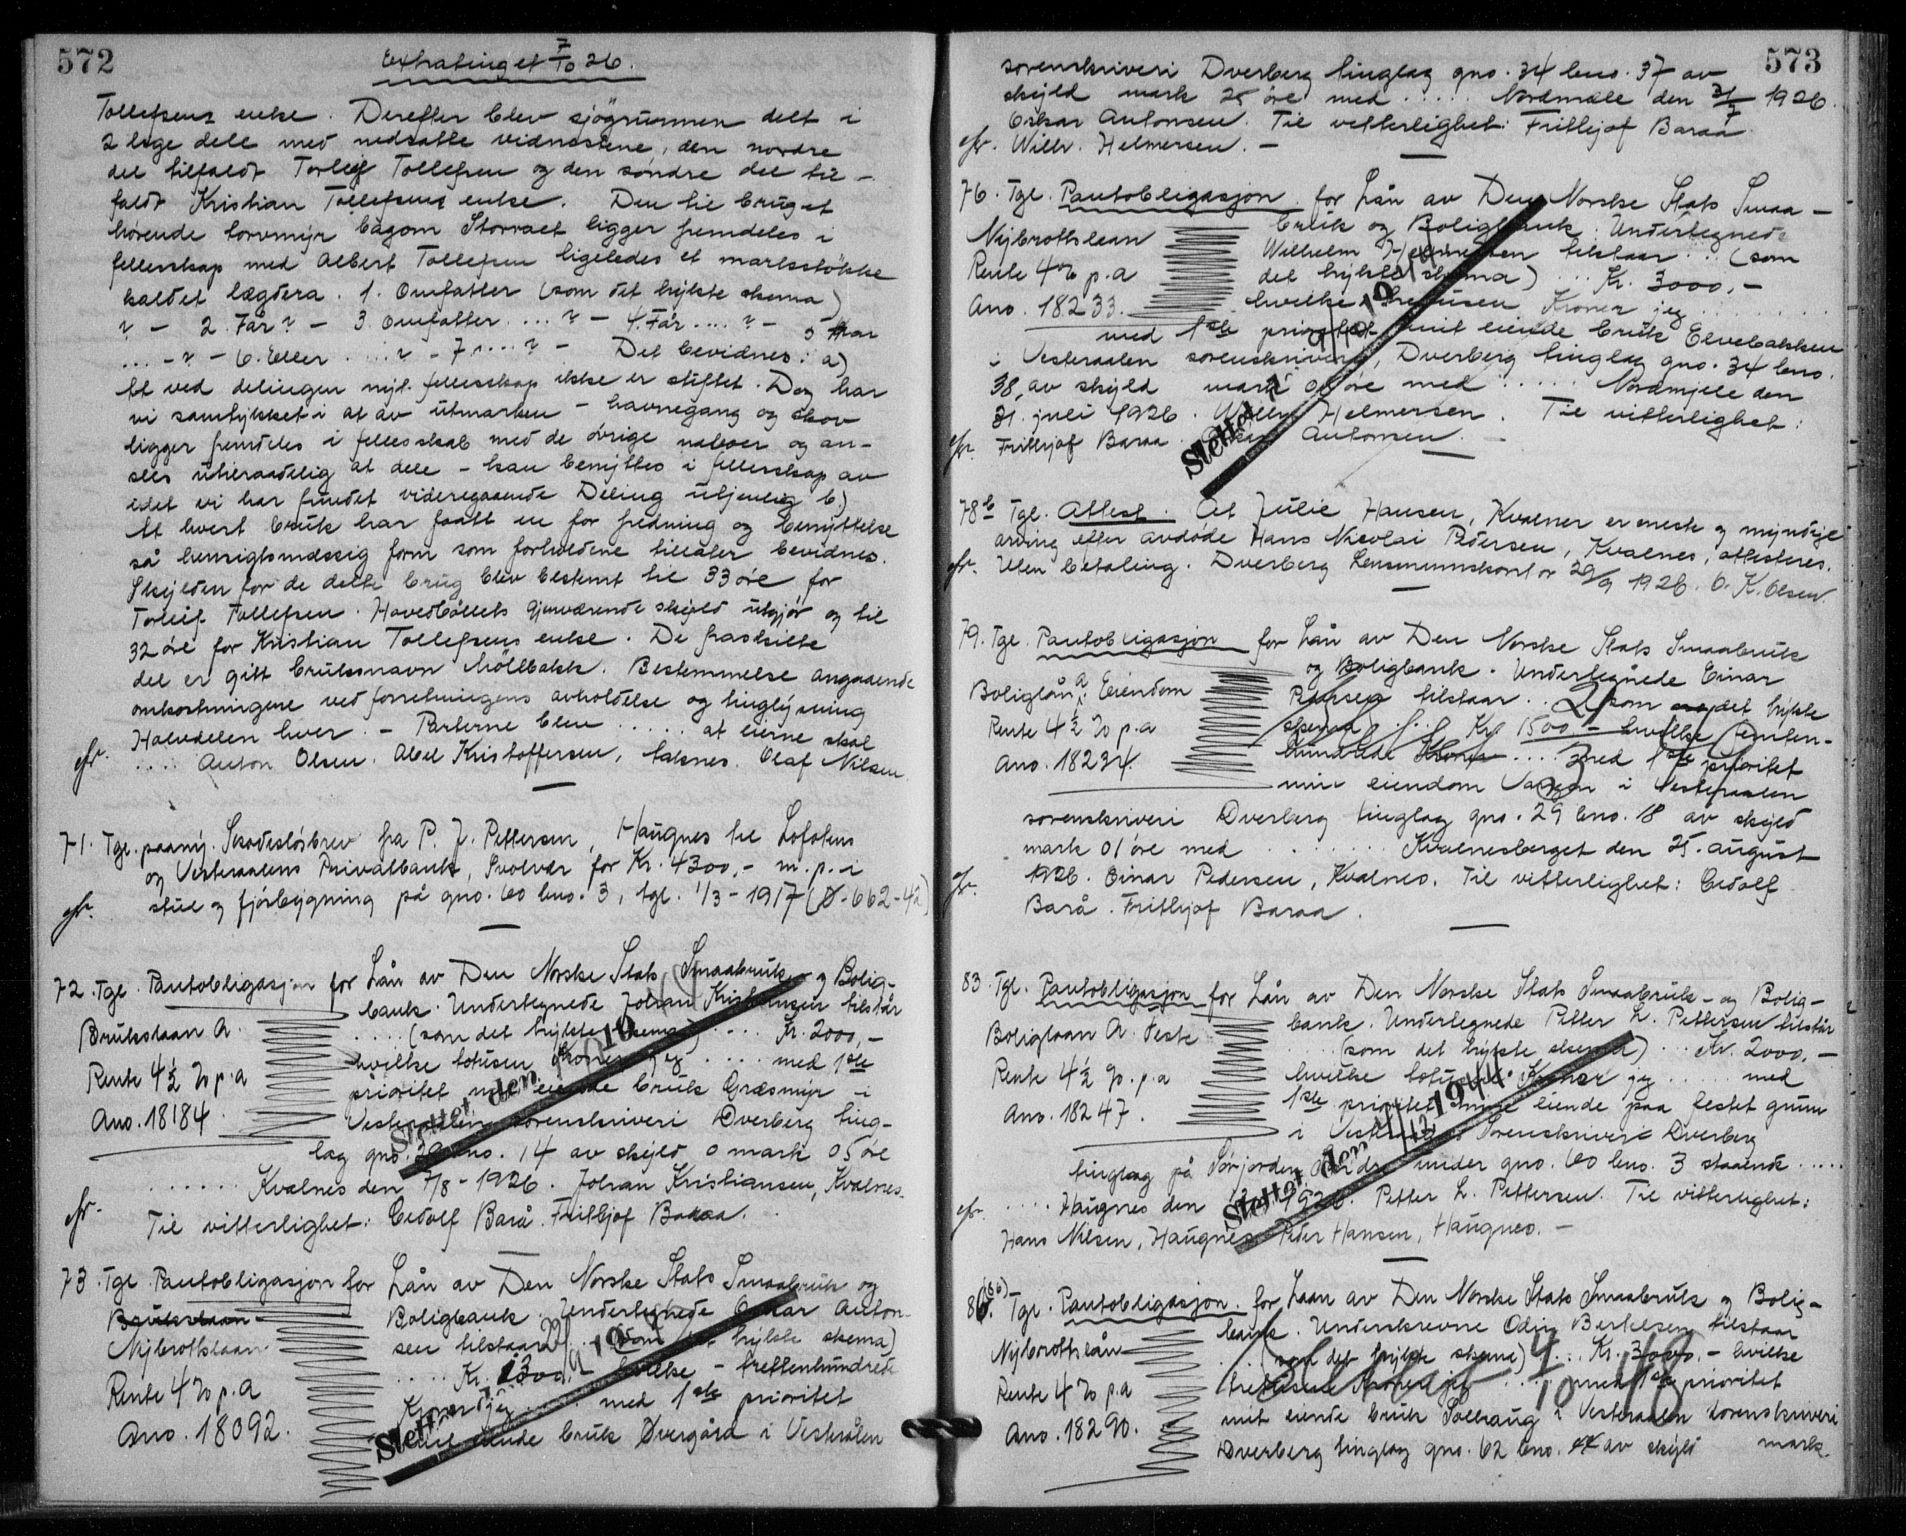 572
Extratinget 7/10 26.
Tollefsens enke. Derefter blev sjøgrunnen delt i
2 lige dele med nedsatte vidnestene, den nordre
del tilfaldt Torleif Tollefsen og den søndre del til-
faldt Kristian Tollefsens enke. Den til bruget
hørende torvmyr bagom Storraet ligger fremdeles i
fellesskap med Albert Tollefsen ligeledes et markstøkke
kaldet lægdera. 1. Omfatter (som det trykte skema)
" - 2. Får " - 3. Omfatter .... " - 4. Får .... " - 5 Har
... - " - 6. Eller .... " - 7 .... " - Det bevidnes: a)
At ved delingen nyt fellesskap ikke er stiftet. Dog har
vi samtykket i at av utmarken - havnegang og skov
ligger fremdeles i fellesskab med de øvrige naboer og an-
sees utilraadelig at dele - kan benyttes i fellesskap av
idet vi har fundet videregaaende Deling utjenlig b)
At hvert bruk har faatt en for fredning og benyttelse
så hensigtsmæssig form som forholdene tillater bevidnes.
Skylden for de delte brug blev bestemt til 33 øre for
Torleif Tollefsen. Hovedbøllets gjenværende skyld utgjør og til
32 øre for Kristian Tollefsens enke. De fraskilte
del er gitt bruksnavn Møllbakk. Bestemmelse angaaende
omkostningene ved forretningens avholdelse og tinglysning
Halvdelen hver. - Parterne blev ..... at eierne skal
.... Anton Olsen. Abel Kristoffersen, Olaf Nilsen.
71. Tgl. paany. Skadesløsbrev fra P. J. Pettersen, Haugnes til Lofotens
og Vesteraalens Privatbank, Svolvær for Kr. 4300,- m. p. i
stue og fjøsbygning på gno. 60 bno. 3, tgl. 1/3-1917 (-662-42)
72. Tgl. Pantobligasjon for Lån av Den Norske Stats Smaabruk og Bolig-
bank. Undertegnede Johan Kristiansen tilstår
Brukslaan A.
.... (som det trykte skema) .... Kr. 2000,-
hvilke totusen Kroner jeg .... med 1ste
Rente 4½ % p.a
prioritet mit eiende bruk Græsmyr i
Ano. 18184
Vesteraalen sorenskriveri Dverberg ting-
lag gno. 29 bno. 14 av skyld 0 mark 05 øre
....... Kvalnes den 7/8-1926. Johan Kristiansen, Kvalnes.
Til vitterlighet: Bedolf Barå. Frithjof Baraa.
Slettet den
73. Tgl. Pantobligasjon for Lån av Den Norske Stats Smaabruk og
Brukslaan
Boligbank. Undertegnede Oskar Anton-
Nybrottslaan
sen tilstaar .. (som det trykte skema)
Rente 4 % p.a
..... Kr. 1300,- hvilke - trettenhundrede
Kroner jeg ..... med 1ste prioritet
Ano. 18092.
mit eiende bruk Øvergård i Vesterålen
Slettet
573
sorenskriveri Dverberg tinglag gno. 34 bno. 37 av
skyld mark 25 øre med ..... Nordmæle den 31/7 1926.
Oskar Antonsen. Til vitterlighet: Frithjof Baraa.
Wilh. Helmersen. -
76. Tgl. Pantobligasjon for Lån av Den Norske Stats Smaa-
bruk og Boligbank. Undertegnede
Nybrottslaan
Wilhelm Helmersen tilstaar ... (som
Rente 4% p.a
det trykte skema) ... Kr. 3000,-
Ano. 18233.
hvilke tretusen Kroner jeg ........
med 1ste prioritet mit eiende bruk Elvebakken
i Vesteraalen sorenskriveri, Dverberg tinglag gno. 34 bno.
38, av skyld mark 0 øre med ..... Nordmjele den
31. juli 1926. Wilh. Helmersen. Til vitterlighet:
Frithjof Baraa. Oskar Antonsen. -
Slettet
78b Tgl. Attest. At Julie Hansen, Kvalnes er eneste og myndige
arving efter avdøde Hans Nicolai Pedersen, Kvalnes, attesteres.
Uten betaling. Dverberg Lensmannskontor 29/9 1926. O. K. Olsen.
79. Tgl. Pantobligasjon for Lån av Den Norske Stats Smaabruk
og Boligbank. Undertegnede Einar
Boliglån a. Eiendom
Pedersen tilstaar ... (som det trykte
Rente 4½ % p.a
skema) ... Kr. 1500,- hvilke femten-
hundrede Kroner .... med 1ste prioritet
Ano. 18234.
min eiendom i Vesteraalen
sorenskriveri Dverberg tinglag gno. 29 bno. 18 av skyld
mark 01 øre med ....... Kvalnesberget den 25. august
1926. Einar Pedersen, Kvalnes. Til vitterlighet: Bedolf
Barå. Frithjof Baraa.
83. Tgl. Pantobligasjon for Lån av Den Norske Stats Smaabruk- og Bolig-
bank. Undertegnede Petter L. Pettersen tilstår
Boliglaan A. Feste
... (som det trykte skema) ... Kr. 2000,-
Rente 4½ %. p.a
hvilke totusen Kroner jeg ..... med
Ano. 18247.
1ste prioritet mine eiende paa festet grunn
i Vesteraalen Sorenskriveri Dverberg
tinglag på Sørjorden under gno. 60 bno. 3 staaende .....
.... Haugnes den 1926. Petter L. Pettersen. Til vitterlighet:
Hans Nilsen, Haugnes. Peder Hansen, Haugnes. -
Slettet den 1/12 1944
86. (86) Tgl. Pantobligasjon for Laan av Den Norske Stats Smaabruk og Bolig-
bank. Underskrevne Odin Bertelsen tilstaar
Nybrottslån
... (som det trykte skema) ... Kr. 3000,- hvilke
Rente 4 % p.a
tretusene Kroner jeg ..... med 1ste prioritet
mit eiende bruk Solhaug i Vesteraalen sorenskriveri
Ano. 18290.
Dverberg tinglag gno. 62 bno. av skyld mark